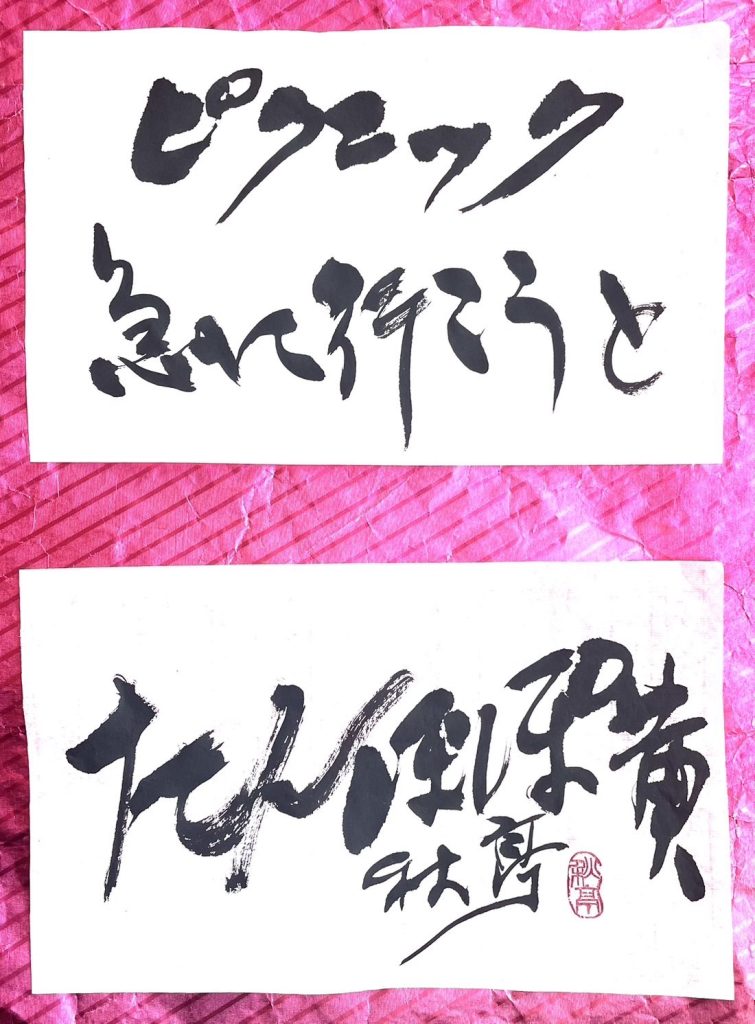 ピクニック
急に行こうと
たんぽぽ黄
秋亭
秋亭